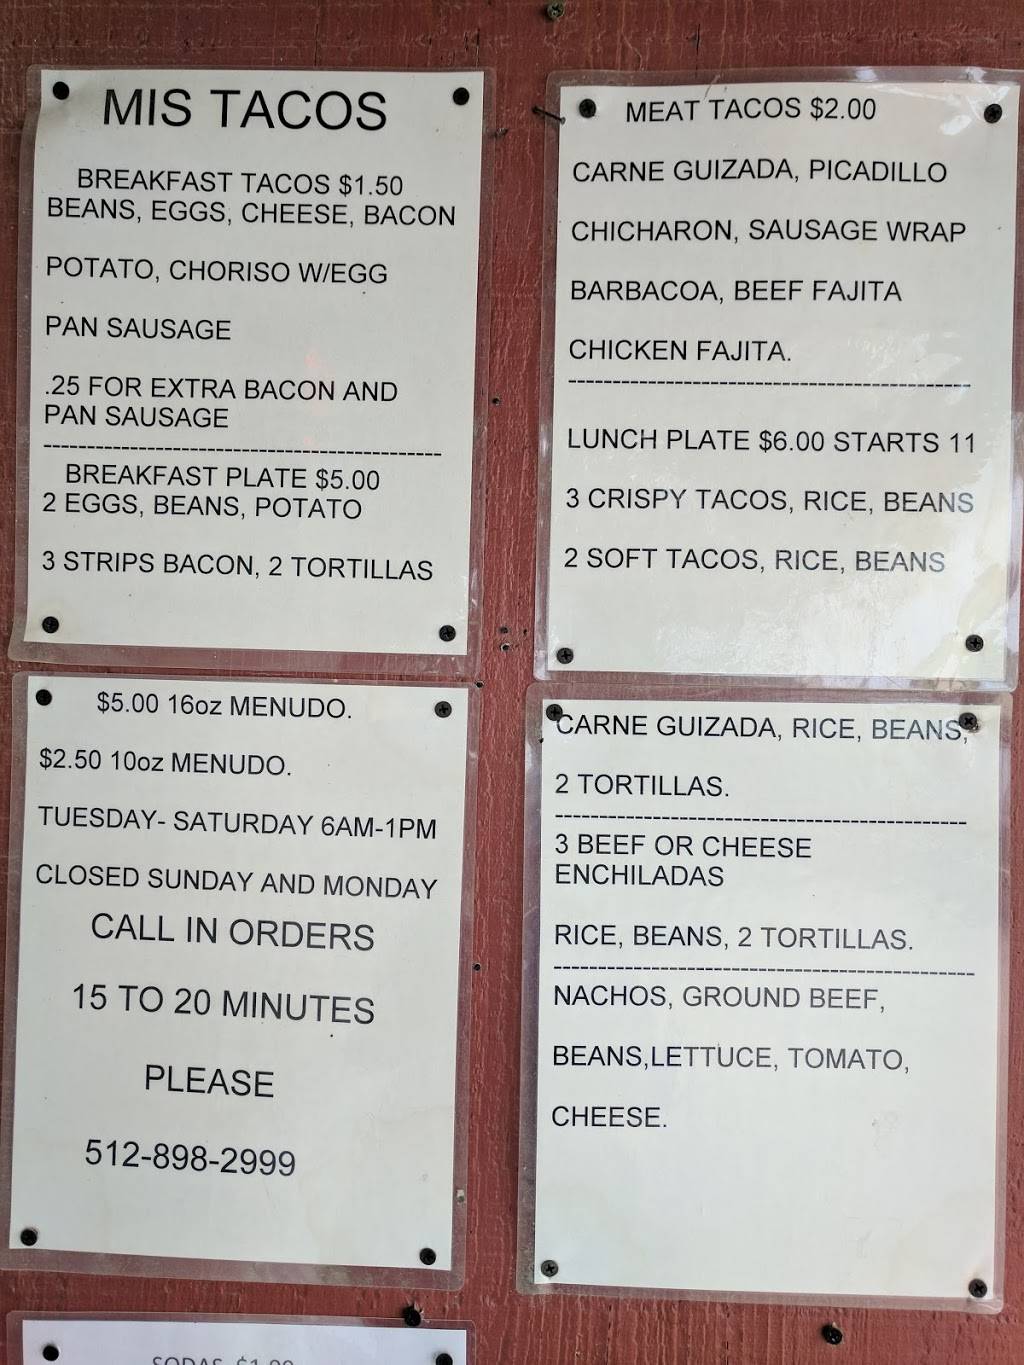 MIS TACOS
BREAKFAST TACOS $1.50
BEANS, EGGS, CHEESE, BACON
POTATO, CHORISO W/EGG
PAN SAUSAGE
.25 FOR EXTRA BACON AND
PAN SAUSAGE
--------------------------------------------
BREAKFAST PLATE $5.00
2 EGGS, BEANS, POTATO
3 STRIPS BACON, 2 TORTILLAS
MEAT TACOS $2.00
CARNE GUIZADA, PICADILLO
CHICHARON, SAUSAGE WRAP
BARBACOA, BEEF FAJITA
CHICKEN FAJITA.
--------------------------------------------
LUNCH PLATE $6.00 STARTS 11
3 CRISPY TACOS, RICE, BEANS
2 SOFT TACOS, RICE, BEANS
$5.00 16oz MENUDO.
$2.50 10oz MENUDO.
TUESDAY- SATURDAY 6AM-1PM
CLOSED SUNDAY AND MONDAY
CALL IN ORDERS
15 TO 20 MINUTES
PLEASE
512-898-2999
CARNE GUIZADA, RICE, BEANS,
2 TORTILLAS.
--------------------------------------------
3 BEEF OR CHEESE
ENCHILADAS
RICE, BEANS, 2 TORTILLAS.
--------------------------------------------
NACHOS, GROUND BEEF,
BEANS,LETTUCE, TOMATO,
CHEESE.
SODAS $1.00